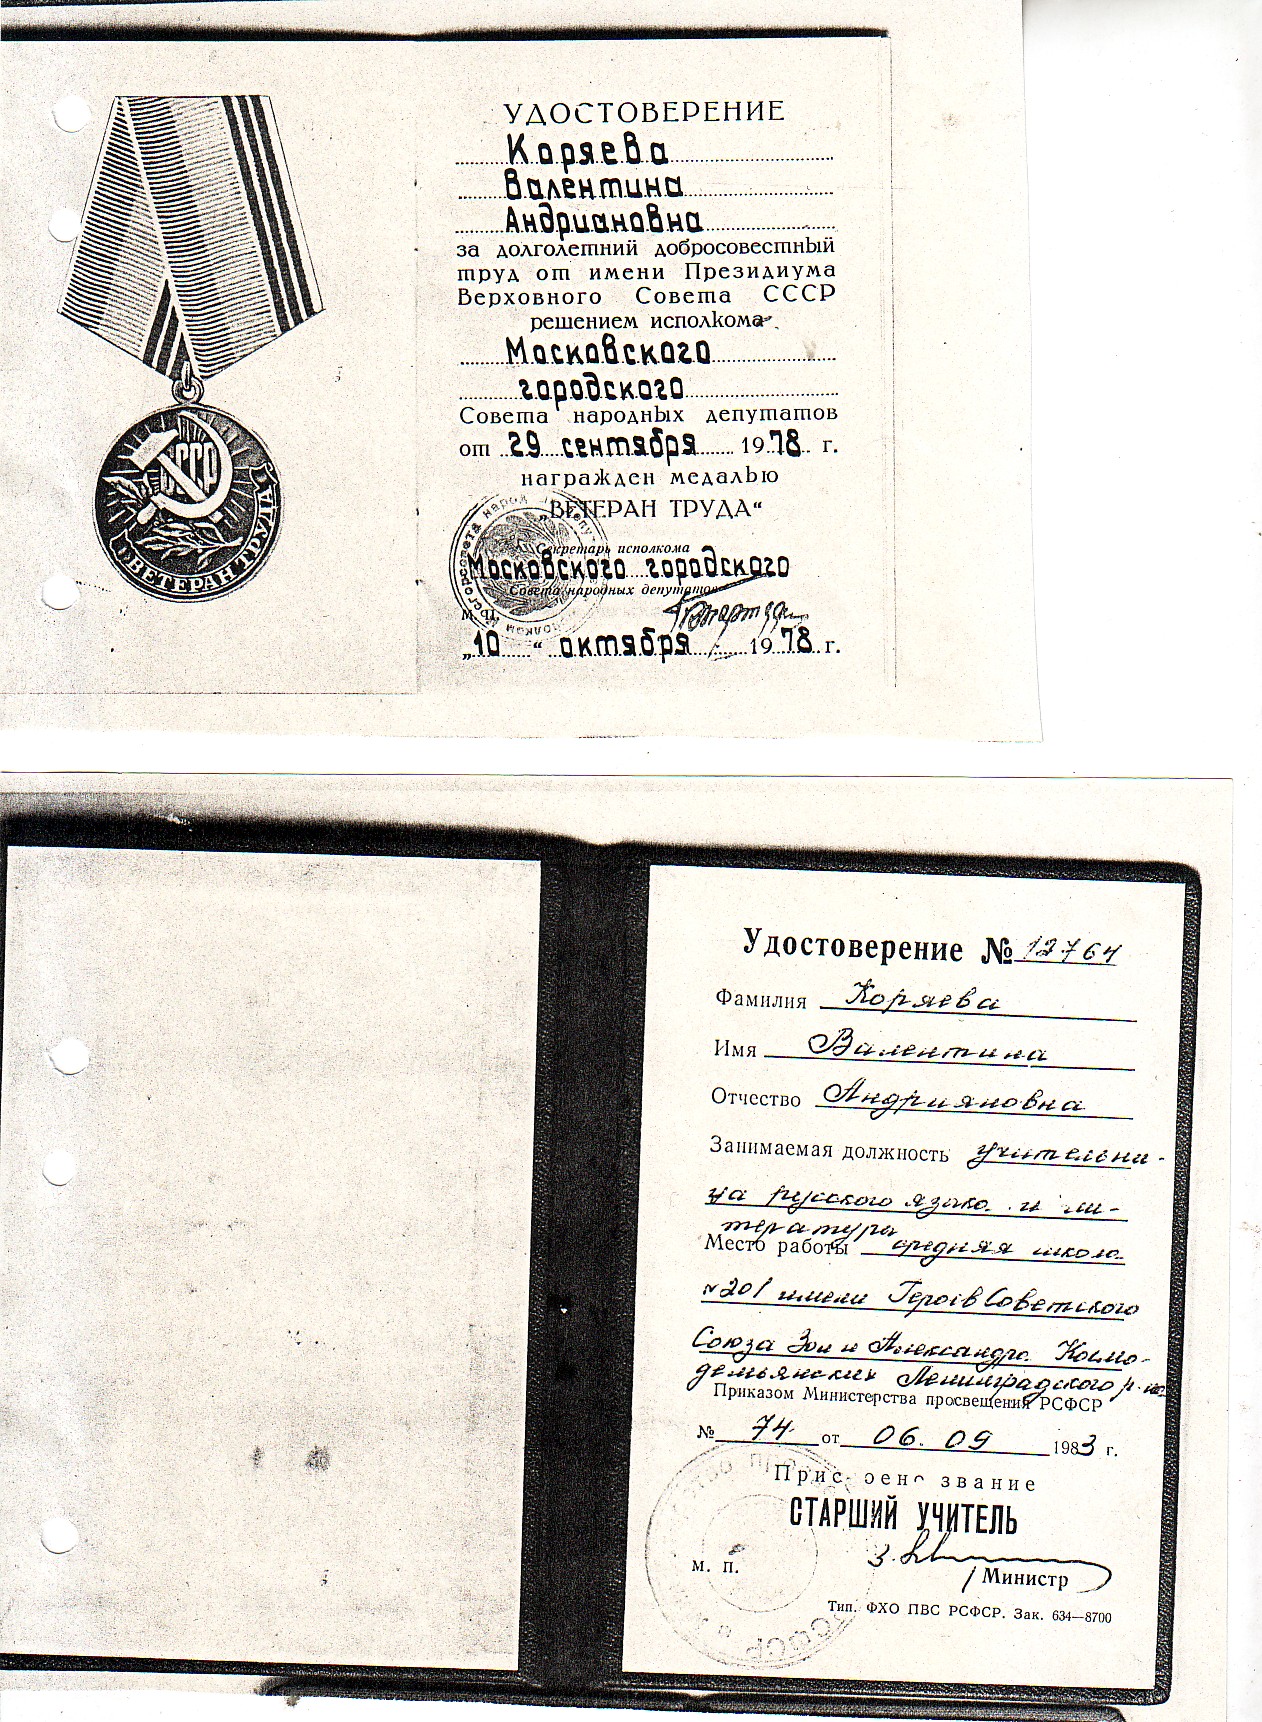 УДОСТОВЕРЕНИЕ
Коряева
Валентина
Андриановна
за долголетний добросовестный
труд от имени Президиума
Верховного Совета СССР
решением исполкома
Московского
городского
Совета народных депутатов
от 29 сентября 1978 г.
награжден медалью
„ВЕТЕРАН ТРУДА“
Секретарь исполкома
Московского городского
Совета народных депутатов
М. П.
„10“ октября 1978 г.
СССР
ВЕТЕРАН ТРУДА
Удостоверение № 12764
Фамилия Коряева
Имя Валентина
Отчество Андрияновна
Занимаемая должность учительни-
ца русского языка и ли-
тературы
Место работы средняя школа
№ 201 имени Героев Советского
Союза Зои и Александра Космо-
демьянских Ленинградского р-на
Приказом Министерства просвещения РСФСР
№ 74 от 06.09 1983 г.
Присвоено звание
СТАРШИЙ УЧИТЕЛЬ
м. п.
Министр
Тип. ФХО ПВС РСФСР. Зак. 634—8700